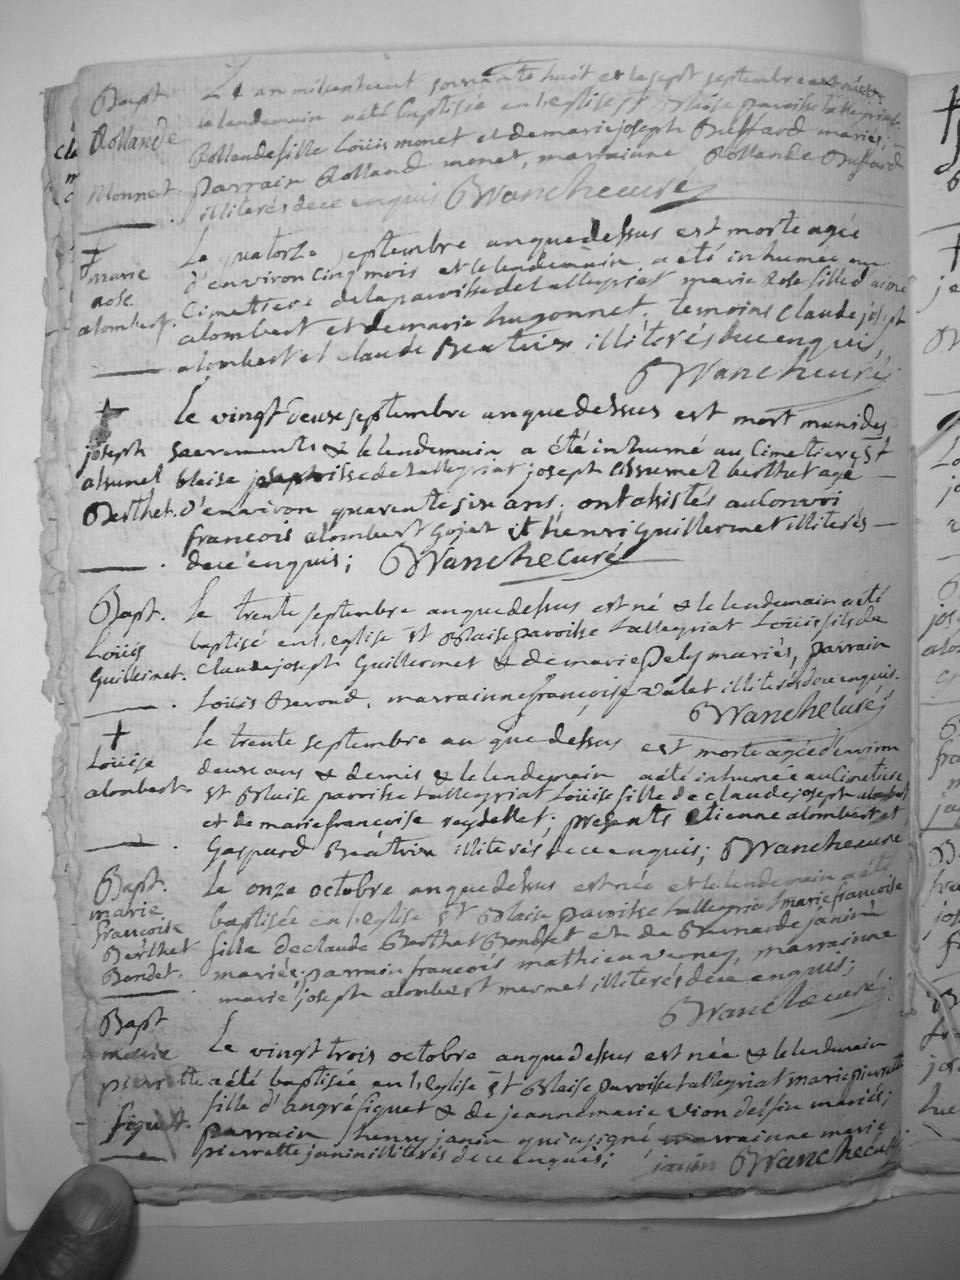 Bapt.
Rollande
Monnet
L'an mil sept cent soixante huit et le sept septembre est née &
le lendemain a été baptisée en l'eglise St Blaise paroisse
Rollande fille Loüis monet et de marie joseph Buffard mariés;
parrain Rolland monet, marrainne Rollande Buffard
illiterés de ce enquis BWanche curé
†
marie
rose
alombert.
Le quatorze septembre an que dessus est morte agée
d'environ cinq mois et le lendemain a été inhumée au
Cimetiere de la paroisse de tallegriat marie Rose fille d'
alombert et de marie hugonnet. temoins Claude joseph
alombert et Claude Beatrix illiterés de ce enquis,
BWanche curé
†
joseph
assumel
Berthet.
Le vingt deux septembre an que dessus est mort muni des
sacrements & le lendemain a été inhumé au Cimetiere St
blaise paroisse de tallegriat joseph assumel berthet agé
d'environ quarente six ans. ont assistés au Convoi
francois alombert gojet et henri guillermet illiterés
de ce enquis; BWanche Curé
Bapt.
Loüis
Guillermet.
Le trente septembre an que dessus est né & le lendemain a été
baptisé en l'eglise St Blaise paroisse tallegriat Loüis fils de
Claude joseph Guillermet & de marie Pely mariés, parrain
Loüis Berrod, marrainne françoise valet illiterés de ce enquis.
BWanche Curé
†
Loüise
alombert.
Le trente septembre an que dessus est morte agée d'environ
deux ans & demis & le lendemain a été inhumée au Cimetiere
St Blaise paroisse tallegriat Loüise fille de claude joseph alombert
et de marie françoise reydellet; presents etienne alombert et
Gaspard Beatrix illiterés de ce enquis; BWanche curé
Bapt.
marie
françoise
Berthet
Bondet.
Le onze octobre an que dessus est née et le lendemain a été
baptisée en l'eglise St Blaise paroisse tallegriat marie françoise
fille de claude Berthet Bondet et de Bernarde janin
mariés; parrain françois mathieu verney, marrainne
marie joseph alombert mermet illiterés de ce enquis;
BWanche curé
Bapt
marie
pierrette
figuet.
Le vingt trois octobre an que dessus est née & le lendemain
a été baptisée en l'Eglise St Blaise paroisse tallegriat marie pierrette
fille d'angré figuet & de jeanne marie vion delfin mariés;
parrain henry janin qui a signé marrainne marie
pierrette janin illiterés de ce enquis;
janin BWanche curé